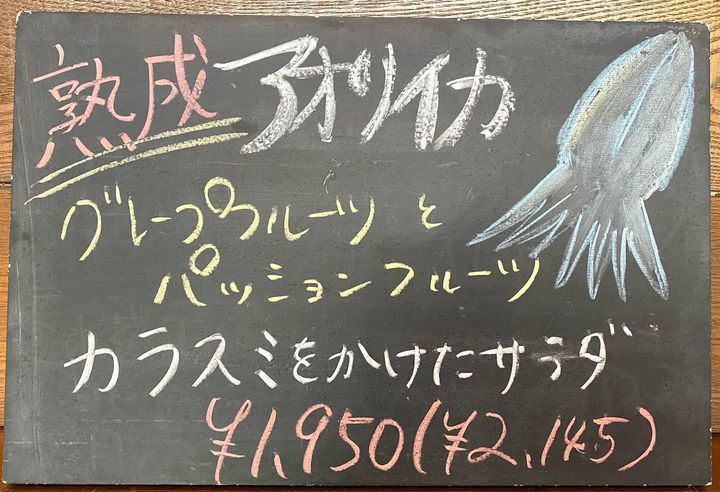 熟成アオリイカ
グレープフルーツと
パッションフルーツ
カラスミをかけたサラダ
¥1,950(¥2,145)